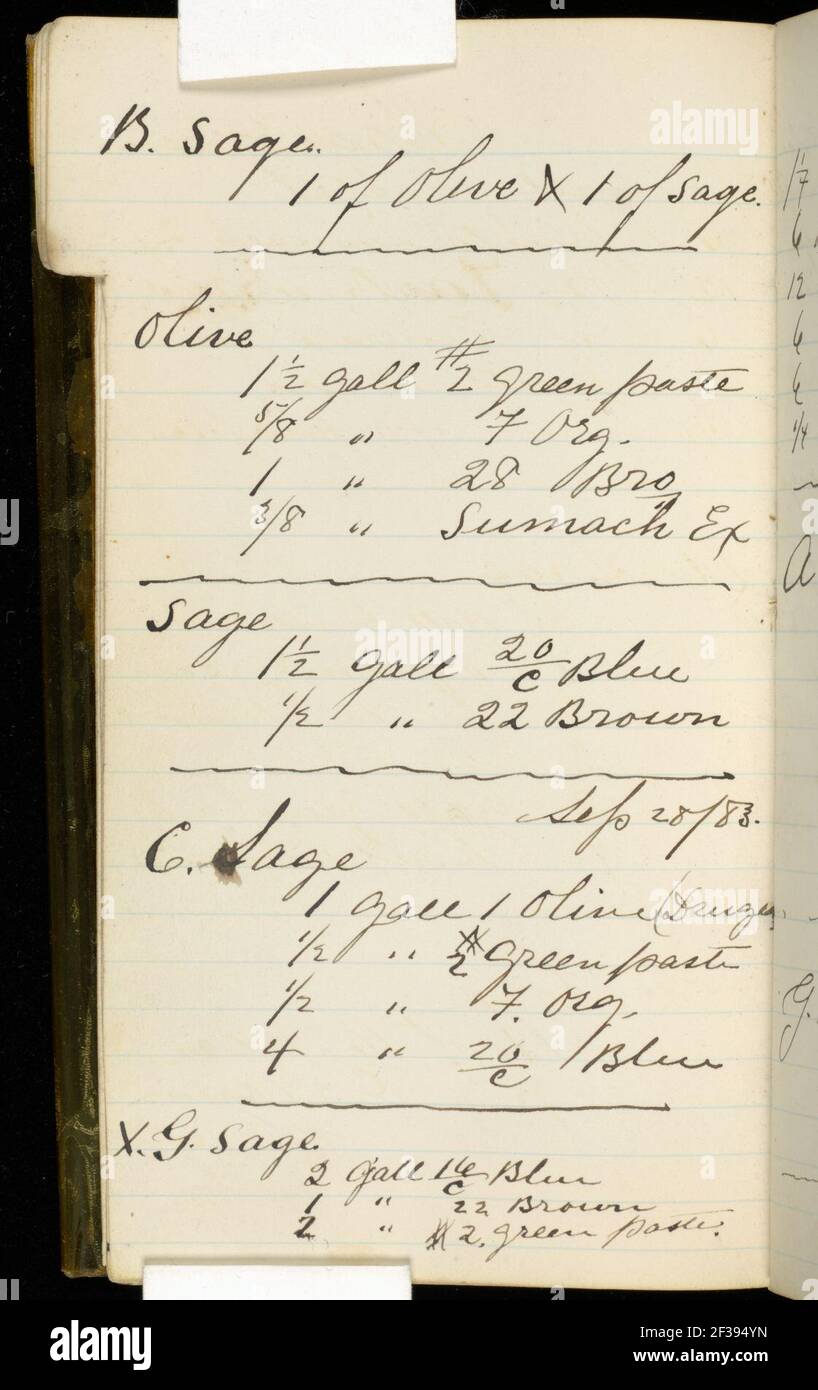 B. Sage.
1 of Olive & 1 of Sage.
Olive
1 1/2 Gall #2 Green paste
5/8 " 7 Org.
1 " 28 Bro
3/8 " Sumach Ex
Sage
1 1/2 Gall 20/C Blue
1/2 " 22 Brown
Sep 28/83.
C. Sage
1 Gall 1 Olive
1/2 " #2 Green paste
1/2 " 7. Org.
4 " 20/C Blue
X. G. Sage
2 Gall 16/C Blue
1 " 22 Brown
2 " #2. Green paste.
17
6
12
6
6
1/4
A
G.
alamy
Image ID: 2F394YN
www.alamy.com